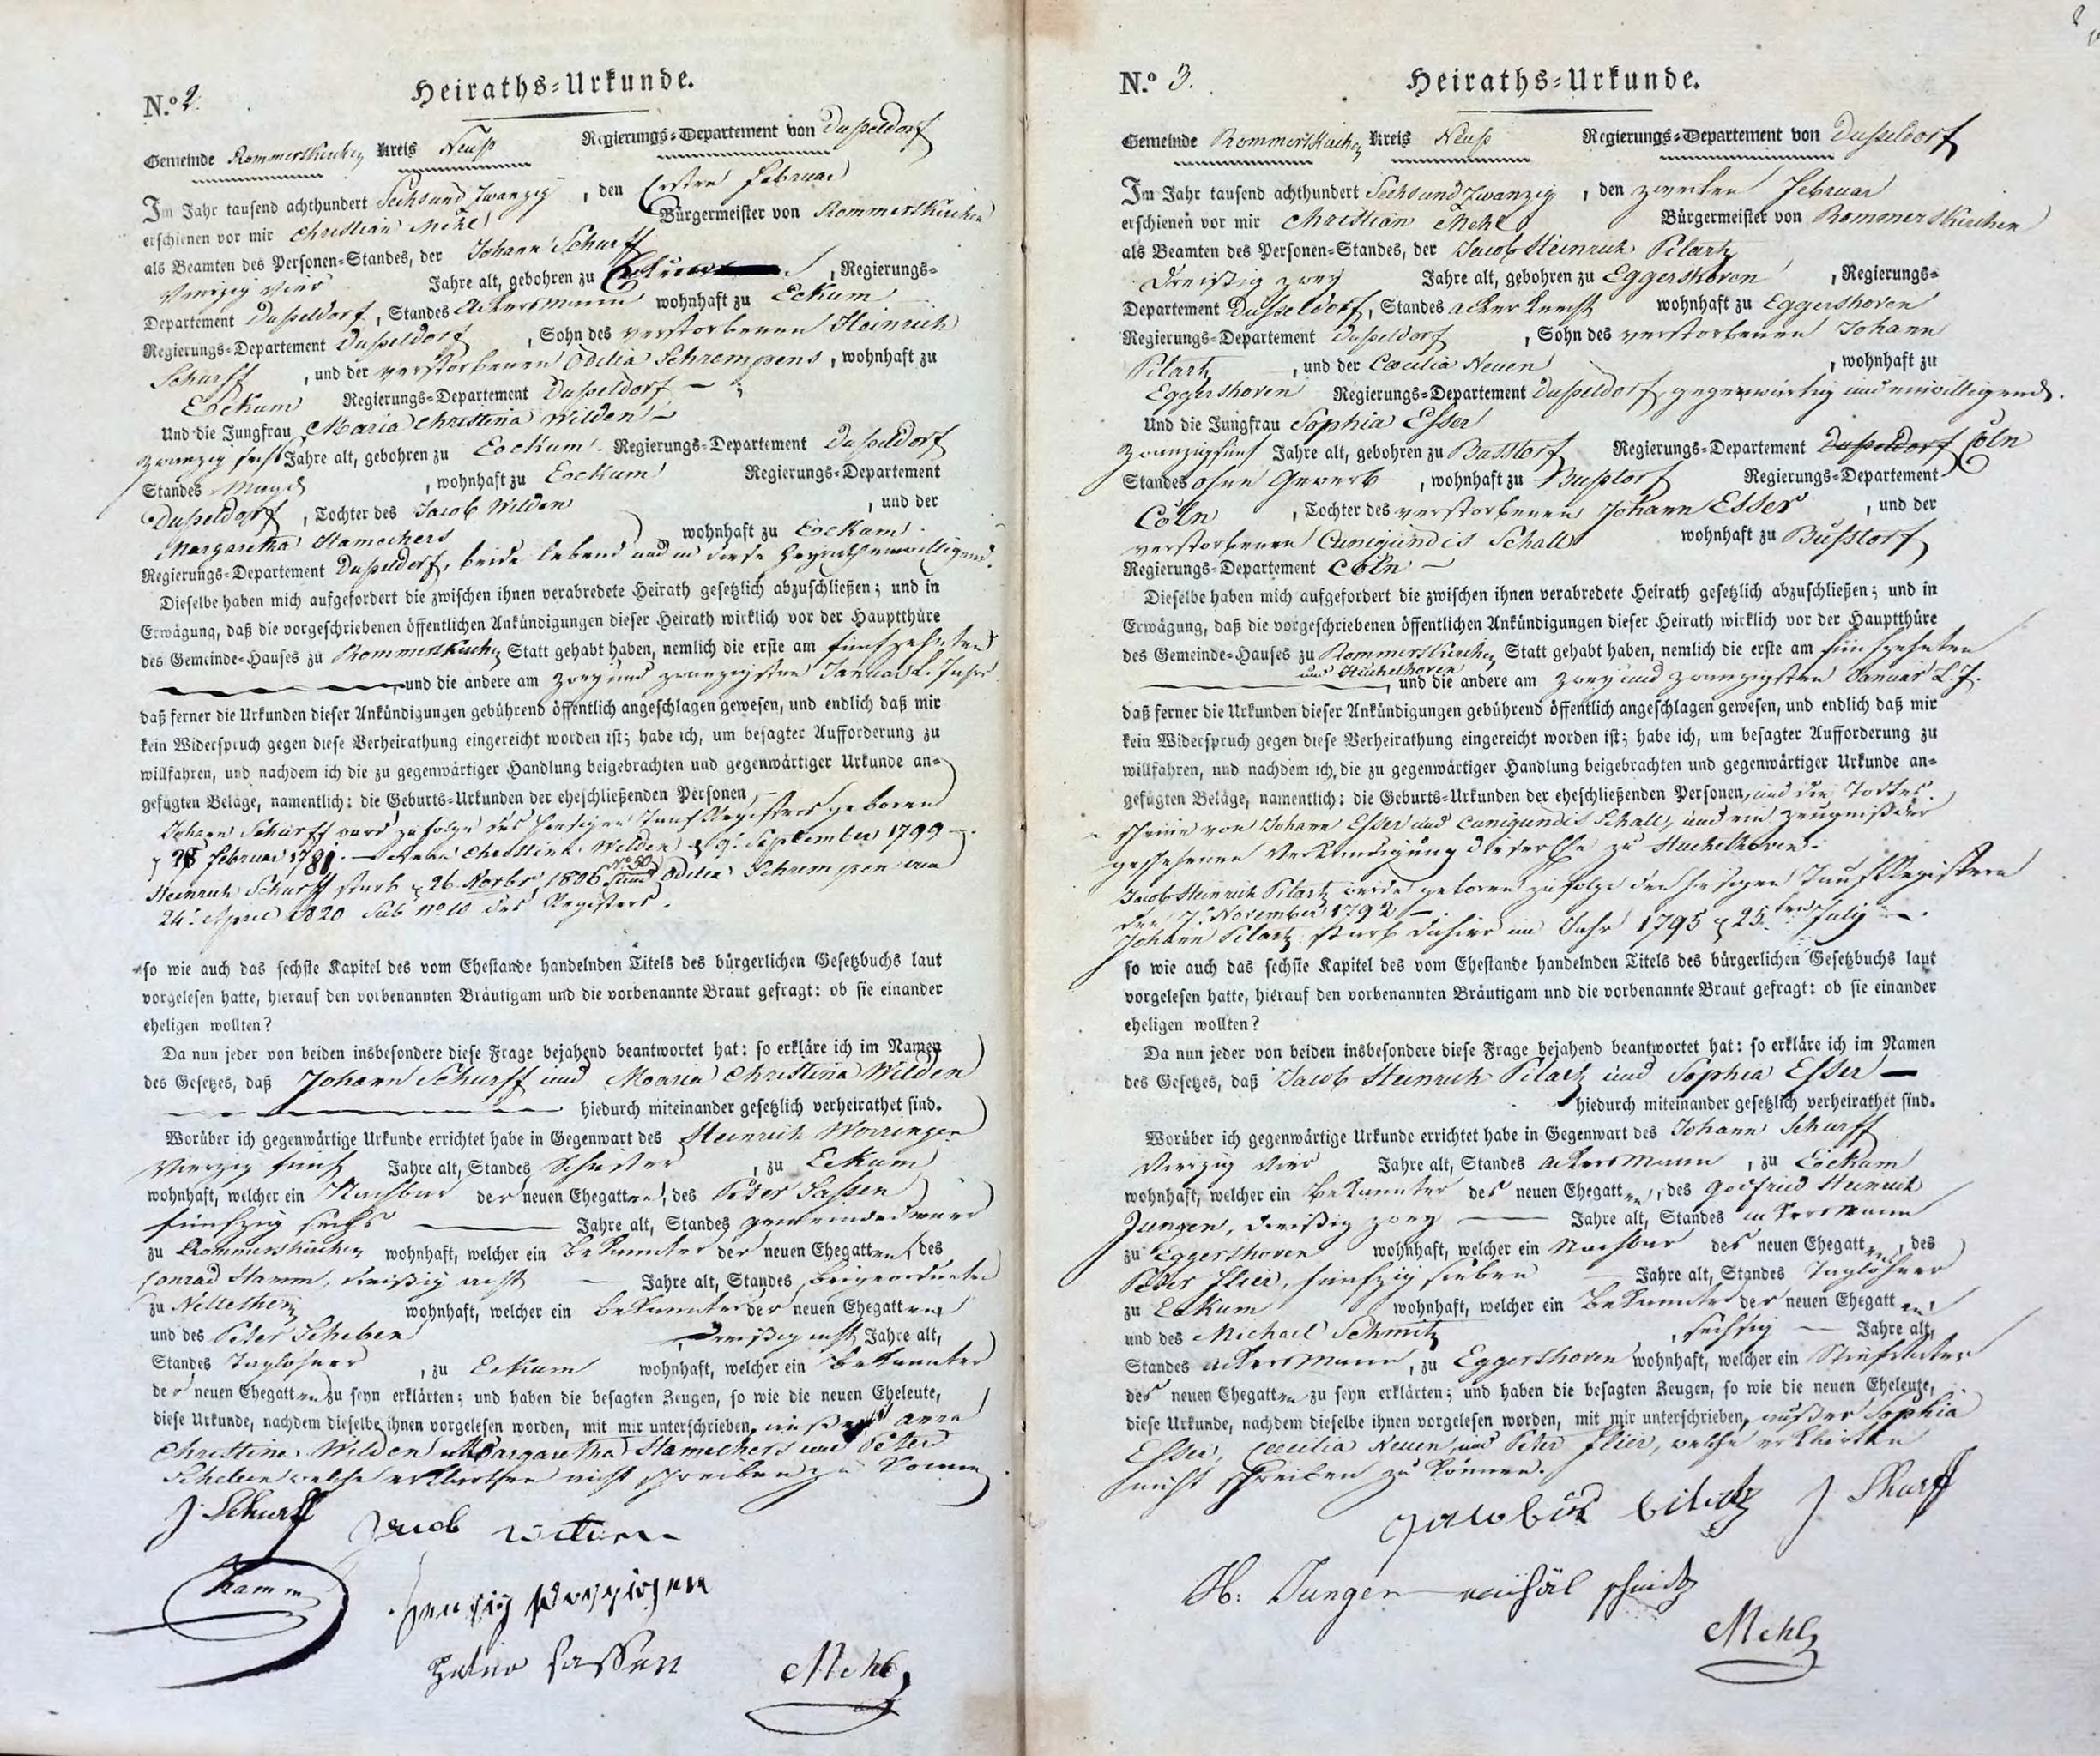 N.º 2.
Heiraths-Urkunde.
Gemeinde Rommerskirchen Kreis Neuß Regierungs-Departement von Dußeldorf
Im Jahr tausend achthundert Sechsundzwanzig, den Ersten Februar
erschienen vor mir Christian Mehl Bürgermeister von Rommerskirchen
als Beamten des Personen-Standes, der Johann Schurff
Vierzig vier Jahre alt, gebohren zu, Regierungs-
Departement Dußeldorf, Standes Ackersmann wohnhaft zu Eckum
Regierungs-Departement Dußeldorf, Sohn des verstorbenen Heinrich
Schurff, und der verstorbenen Odilia Schrempens, wohnhaft zu
Eockum Regierungs-Departement Dußeldorf — ;
Und die Jungfrau Maria Christina Wilden —
zwanzig sechs Jahre alt, gebohren zu Eockum. Regierungs-Departement Dußeldorf
Standes Magd, wohnhaft zu Eockum Regierungs-Departement
Dußeldorf, Tochter des Jacob Wilden, und der
Margaretha Hamechers wohnhaft zu Eockum.
Regierungs-Departement Dußeldorf, beide lebend und in diese Heyrath einwilligend.
Dieselbe haben mich aufgefordert die zwischen ihnen verabredete Heirath gesetzlich abzuschließen; und in
Erwägung, daß die vorgeschriebenen öffentlichen Ankündigungen dieser Heirath wirklich vor der Hauptthüre
des Gemeinde-Hauses zu Rommerskirchen Statt gehabt haben, nemlich die erste am fünfzehnten
, und die andere am zwey und zwanzigsten Januar l. Jahrs
daß ferner die Urkunden dieser Ankündigungen gebührend öffentlich angeschlagen gewesen, und endlich daß mir
kein Widerspruch gegen diese Verheirathung eingereicht worden ist; habe ich, um besagter Aufforderung zu
willfahren, und nachdem ich die zu gegenwärtiger Handlung beigebrachten und gegenwärtiger Urkunde an-
gefügten Beläge, namentlich: die Geburts-Urkunden der eheschließenden Personen,
Johann Schürff ward zufolge des hiesigen Taufregisters geboren
Februar 1781. — Christina Wilden 9. September 1799 —.
Heinrich Schurff starb 26 Novbr 1806 No 50 und Odilia Schrempen am
24. April 1820 sub no 10 des Registers.
so wie auch das sechste Kapitel des vom Ehestande handelnden Titels des bürgerlichen Gesetzbuchs laut
vorgelesen hatte, hierauf den vorbenannten Bräutigam und die vorbenannte Braut gefragt: ob sie einander
eheligen wollten?
Da nun jeder von beiden insbesondere diese Frage bejahend beantwortet hat: so erkläre ich im Namen
des Gesetzes, daß Johann Schurff und Maria Christina Wilden
hiedurch miteinander gesetzlich verheirathet sind.
Worüber ich gegenwärtige Urkunde errichtet habe in Gegenwart des Heinrich Worringen
Vierzig fünf Jahre alt, Standes Schuster, zu Eckum
wohnhaft, welcher ein Nachbar der neuen Ehegatten, des Peter Sassen
fünfzig sechs Jahre alt, Standes
zu Rommerskirchen wohnhaft, welcher ein Bekannter der neuen Ehegatten, des
Conrad Hamm, dreißig acht — Jahre alt, Standes Beigeordneter
zu Nettesheim wohnhaft, welcher ein Bekannter der neuen Ehegatten,
und des Peter Scheben, dreißig acht Jahre alt,
Standes Taglöhner, zu Eckum wohnhaft, welcher ein Bekannter
der neuen Ehegatten zu seyn erklärten; und haben die besagten Zeugen, so wie die neuen Eheleute,
diese Urkunde, nachdem dieselbe ihnen vorgelesen worden, mit mir unterschrieben, außer
Christina Wilden Margaretha Hamechers und Peter
Scheben welche erklärten nicht schreiben zu können.
J. Schurff Jacob Wilden
Hamm
Henrich Worringen
Peter Sassen Mehl
N.º 3.
Heiraths-Urkunde.
Gemeinde Rommerskirchen Kreis Neuß Regierungs-Departement von Dußeldorf
Im Jahr tausend achthundert Sechsundzwanzig, den zweiten Februar
erschienen vor mir Christian Mehl Bürgermeister von Rommerskirchen
als Beamten des Personen-Standes, der Jacob Heinrich Pilartz
Dreißig zwey Jahre alt, gebohren zu Eggershoven, Regierungs-
Departement Dußeldorf, Standes Ackerknecht wohnhaft zu Eggershoven
Regierungs-Departement Dußeldorf, Sohn des verstorbenen Johann
Pilartz, und der Cæcilia Neuen, wohnhaft zu
Eggershoven Regierungs-Departement Dußeldorf, gegenwärtig und einwilligend.
Und die Jungfrau Sophia Esser
zwanzigfünf Jahre alt, gebohren zu Busstorf Regierungs-Departement Dußeldorf Cöln
Standes ohne Gewerb, wohnhaft zu Bustorf Regierungs-Departement
Cöln, Tochter des verstorbenen Johann Esser, und der
verstorbenen Cunigundis Schall wohnhaft zu Bußtorf
Regierungs-Departement Cöln —
Dieselbe haben mich aufgefordert die zwischen ihnen verabredete Heirath gesetzlich abzuschließen; und in
Erwägung, daß die vorgeschriebenen öffentlichen Ankündigungen dieser Heirath wirklich vor der Hauptthüre
des Gemeinde-Hauses zu Rommerskirchen Statt gehabt haben, nemlich die erste am fünfzehnten
und Huchelhoven, und die andere am zwey und zwanzigsten Januar l. J.
daß ferner die Urkunden dieser Ankündigungen gebührend öffentlich angeschlagen gewesen, und endlich daß mir
kein Widerspruch gegen diese Verheirathung eingereicht worden ist; habe ich, um besagter Aufforderung zu
willfahren, und nachdem ich, die zu gegenwärtiger Handlung beigebrachten und gegenwärtiger Urkunde an-
gefügten Beläge, namentlich: die Geburts-Urkunden der eheschließenden Personen, und die Todtes
scheine von Johann Esser und Cunigundis Schall, und ein Zeugniß der
geschehenen Verkündigung dieser Ehe zu Huchelhoven.
Jacob Heinrich Pilartz wurde geboren zufolge den hiesigen Taufregistern
den 7. November 1792 —.
Johann Pilartz starb dahier im Jahr 1795 25.ten July —.
so wie auch das sechste Kapitel des vom Ehestande handelnden Titels des bürgerlichen Gesetzbuchs laut
vorgelesen hatte, hierauf den vorbenannten Bräutigam und die vorbenannte Braut gefragt: ob sie einander
eheligen wollten?
Da nun jeder von beiden insbesondere diese Frage bejahend beantwortet hat: so erkläre ich im Namen
des Gesetzes, daß Jacob Heinrich Pilartz und Sophia Esser —
hiedurch miteinander gesetzlich verheirathet sind.
Worüber ich gegenwärtige Urkunde errichtet habe in Gegenwart des Johann Schurff
Vierzig vier Jahre alt, Standes Ackersmann, zu Eickum
wohnhaft, welcher ein Bekannter des neuen Ehegatten, des Godfried Heinrich
Jungen, dreißig zwey — Jahre alt, Standes Ackersmann
zu Eggershoven wohnhaft, welcher ein Nachbar des neuen Ehegatten, des
Peter Flier, fünfzig sieben Jahre alt, Standes Taglöhner
zu Eckum wohnhaft, welcher ein Bekannter der neuen Ehegatten
und des Michael Schmitz, sechszig — Jahre alt,
Standes Ackersmann, zu Eggershoven wohnhaft, welcher ein Stiefvater
des neuen Ehegatten zu seyn erklärten; und haben die besagten Zeugen, so wie die neuen Eheleute,
diese Urkunde, nachdem dieselbe ihnen vorgelesen worden, mit mir unterschrieben, außer Sophia
Esser, Cæcilia Neuen, und Peter Flier, welche erklärten
nicht schreiben zu können.
Jacobus Pilartz J Schurff
H: Jungen Michäl Schmitz
Mehl